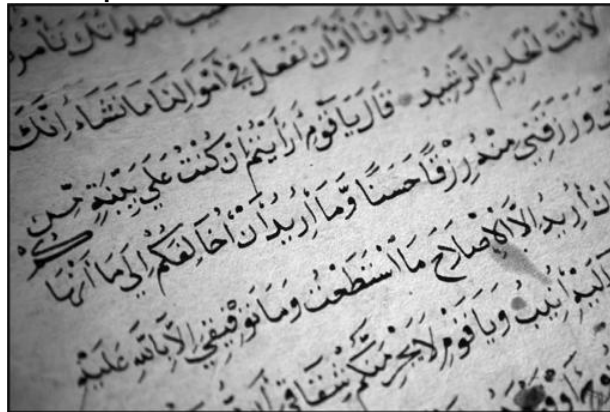 أَصَلَواتُكَ تَأْمُرُ
آبَاؤُنَا أَوْ أَنْ نَفْعَلَ فِي أَمْوَالِنَا مَا نَشَاءُ إِنَّكَ
لَأَنْتَ الْحَلِيمُ الرَّشِيدُ قَالَ يَا قَوْمِ أَرَأَيْتُمْ إِنْ كُنْتُ عَلَى بَيِّنَةٍ مِنْ
وَرَزَقَنِي مِنْهُ رِزْقًا حَسَنًا وَمَا أُرِيدُ أَنْ أُخَالِفَكُمْ إِلَى مَا أَنْهَا
كُمْ
أُرِيدُ إِلَّا الْإِصْلَاحَ مَا اسْتَطَعْتُ وَمَا تَوْفِيقِي إِلَّا بِاللَّهِ عَلَيْهِ
إِلَيْهِ أُنِيبُ وَيَا قَوْمِ لَا يَجْرِمَنَّكُمْ شِقَاقِي أَنْ